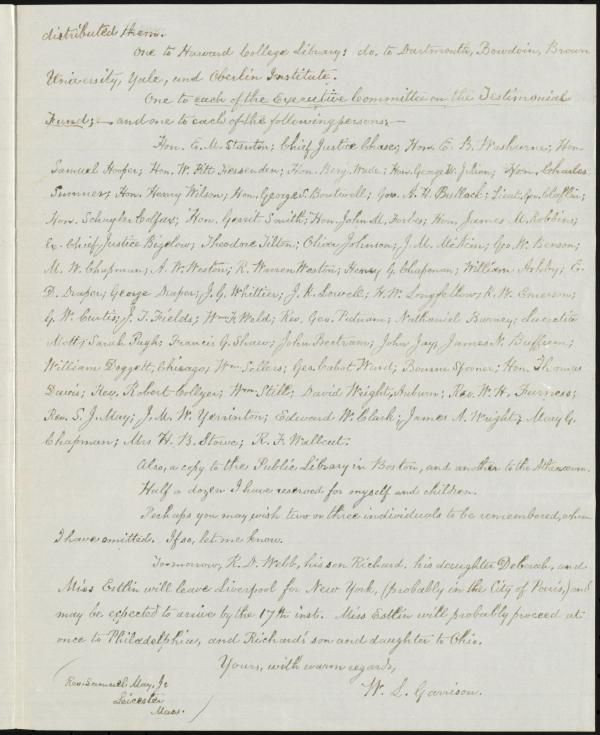 distributed them.
One to Harvard College Library; do. to Dartmouth, Bowdoin, Brown
University, Yale, and Oberlin Institute.
One to each of the Executive Committee on the Testimonial
Fund;— and one to each of the following persons:—
Hon. E. M. Stanton; Chief Justice Chase; Hon. E. B. Washburne; Hon.
Samuel Hooper; Hon. W. Pitt Fessenden; Hon. Benj. Wade; Hon. George W. Julian; Hon. Charles
Sumner; Hon. Henry Wilson; Hon. George S. Boutwell; Gov. A. H. Bullock; Lieut. Gov. Claflin;
Hon. Schuyler Colfax; Hon. Gerrit Smith; Hon. John M. Forbes; Hon. James M. Robbins;
Ex-Chief Justice Bigelow; Theodore Tilton; Oliver Johnson; J. M. McKim; Geo. W. Benson;
M. W. Chapman; A. W. Weston; R. Warren Weston; Henry G. Chapman; William Ashby; E.
D. Draper; George Draper; J. G. Whittier; J. R. Lowell; H. W. Longfellow; R. W. Emerson;
G. W. Curtis; J. T. Fields; Wm F. Weld; Rev. Geo. Putnam; Nathaniel Barney; Lucretia
Mott; Sarah Pugh; Francis G. Shaw; John Bertram; John Jay; James N. Buffum;
William Doggett, Chicago; Wm Sellers; Geo. Cabot Ward; Bourne Spooner; Hon. Thomas
Davis; Rev. Robert Collyer; Wm Still; David Wright, Auburn; Rev. W. H. Furness;
Rev. S. J. May; J. M. W. Yerrinton; Edward W. Clark; James A. Wright; Mary G.
Chapman; Mrs H. B. Stowe; R. F. Wallcut.
Also, a copy to the Public Library in Boston, and another to the Athenæum.
Half a dozen I have reserved for myself and children.
Perhaps you may wish two or three individuals to be remembered, whom
I have omitted. If so, let me know.
To-morrow, R. D. Webb, his son Richard, his daughter Deborah, and
Miss Estlin will leave Liverpool for New York, (probably in the City of Paris,) and
may be expected to arrive by the 17th inst. Miss Estlin will probably proceed at
once to Philadelphia, and Richard's son and daughter to Ohio.
Yours, with warm regards,
W. L. Garrison.
Rev. Samuel May, Jr.
Leicester
Mass.